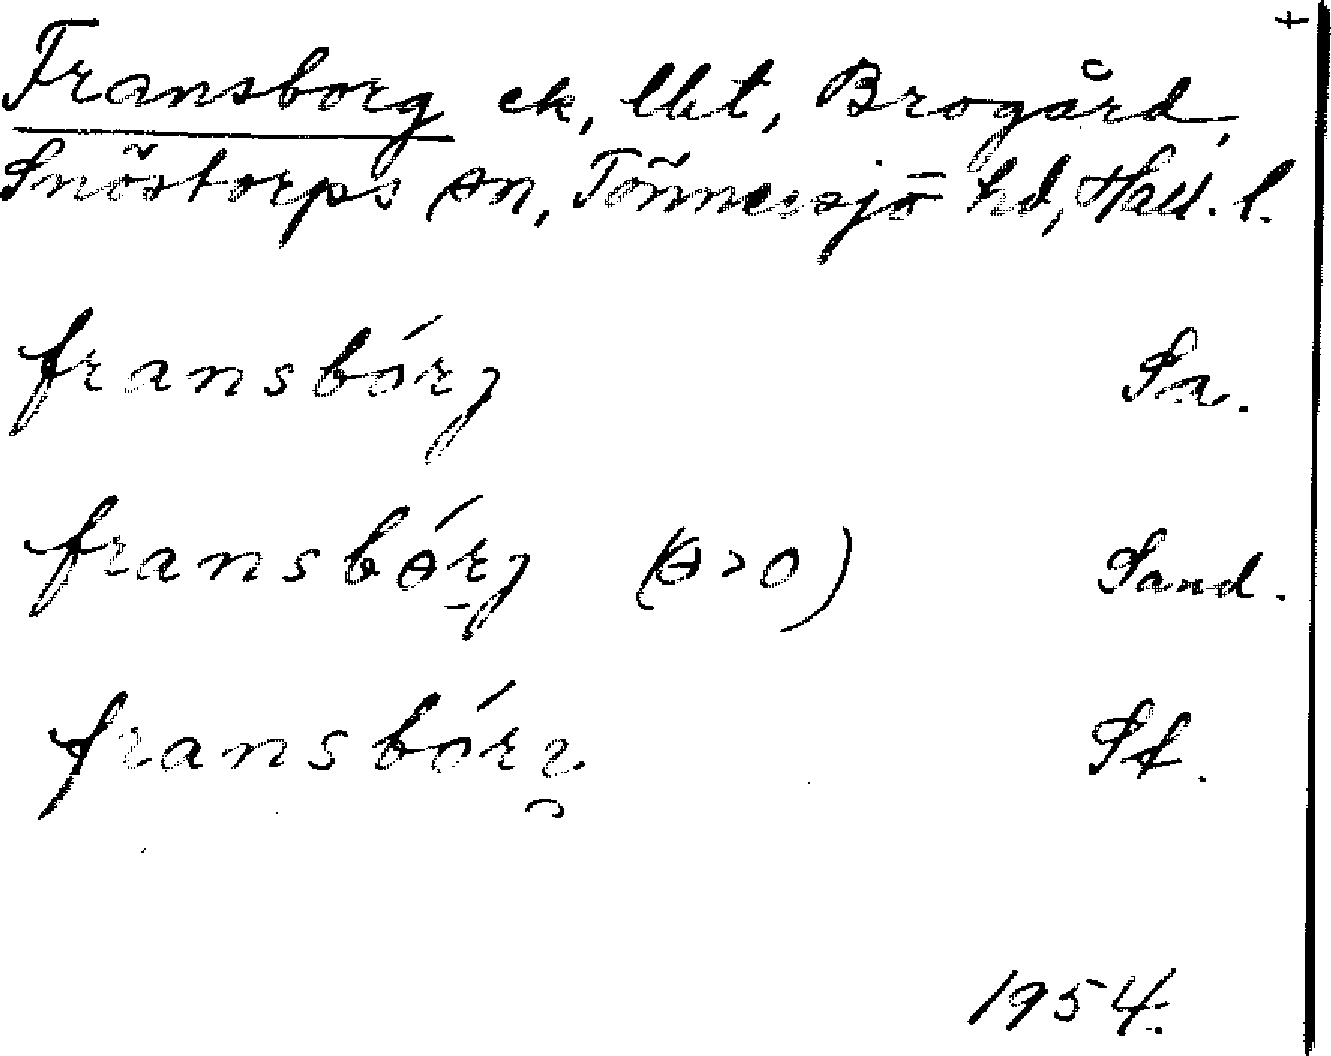 +
Fransborg ek, lht, Brogård,
Snöstorps sn, Tönnersjö hd, Hall. l.
fransbórj Sa.
fransbórj (ɵ>o) Sand.
fransbór Sf.
1954.